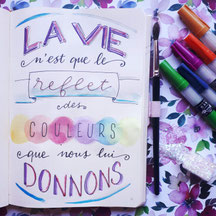 LA VIE
n'est que le
reflet
des
COULEURS
que nous lui
DONNONS